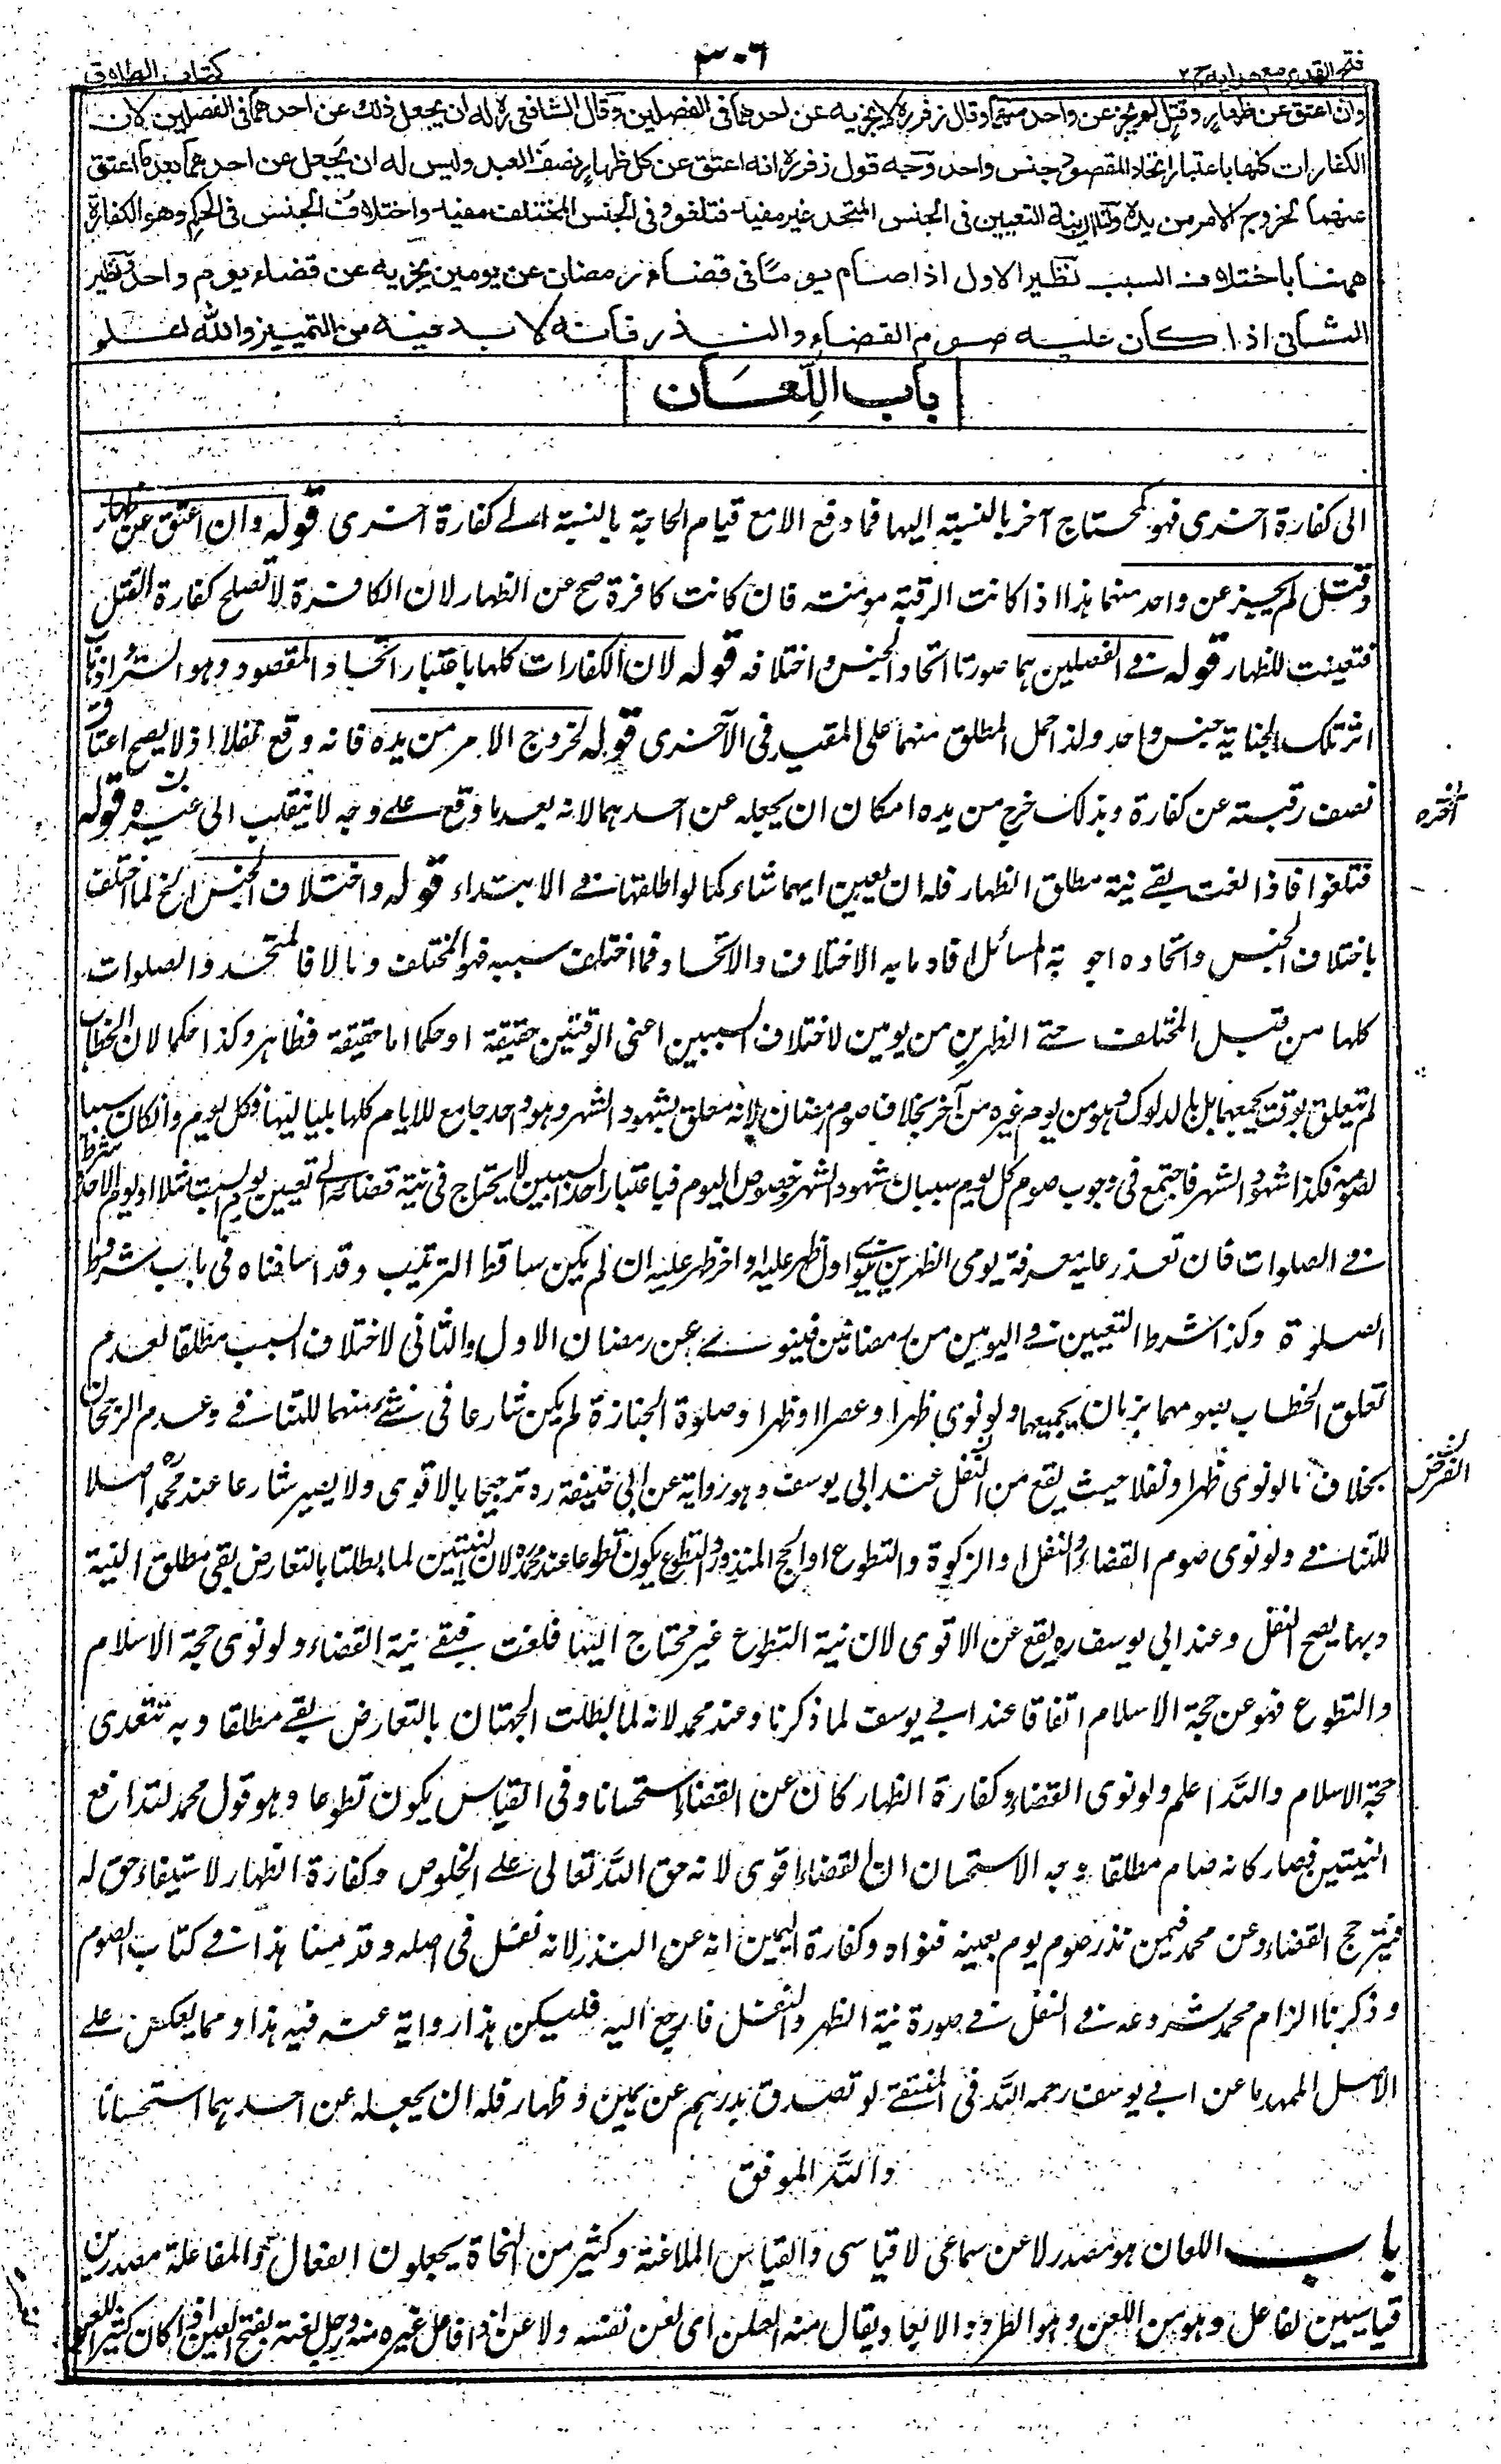 فتح القدير مع هدايه ج ٢
٣٠٦
كتاب الطلاق
وان اعتق عن ظهار وقتل لم يجز عن واحد منهما وقال زفر ره لا يجزيه عن احدهما فى الفصلين وقال الشافعى ره له ان يجعل ذلك عن احدهما فى الفصلين لان
الكفارات كلها باعتبار اتحاد المقصود جنس واحد وجه قول زفر ره انه اعتق عن كل ظهار نصف العبد وليس له ان يجعل عن احدهما بعد ما اعتق
عنهما لخروج الامر من يده ولنا ان نية التعيين فى الجنس المتحد غير مفيد فتلغو وفى الجنس المختلف مفيد واختلاف الجنس فى الحكم وهو الكفارة
ههنا باختلاف السبب نظير الاول اذا صام يوما فى قضاء رمضان عن يومين يجزيه عن قضاء يوم واحد ونظير
الثانى اذا كان عليه صوم القضاء والنذر فانه لا بد فيه من التمييز والله اعلم
باب اللِّعَان
الى كفارة اخرى فهو كمحتاج آخر بالنسبة اليها فما دفع الا مع قيام الحاجة بالنسبة الى كفارة اخرى قوله وان اعتق عن ظهار
وقتل لم يجز عن واحد منهما هذا اذا كانت الرقبة مومنة فان كانت كافرة صح عن الظهار لان الكافرة لا تصلح كفارة القتل
فتعينت للظهار قوله فى الفصلين هما صورتا اتحاد الجنس واختلافه قوله لان الكفارات كلها باعتبار اتحاد المقصود وهو الستر واذهاب
اثر تلك الجناية جنس واحد ولذا حمل المطلق منهما على المقيد فى الاخرى قوله لخروج الامر من يده فانه وقع نفلا اذ لا يصح اعتاق
نصف رقبته عن كفارة وبذلك خرج من يده امكان ان يجعله عن احدهما لانه بعد ما وقع على وجه لا ينقلب الى غيره قوله
فتلغوا فاذا لغت بقى نية مطلق الظهار فله ان يعين ايهما شاء كما لو اطلقها فى الابتداء قوله واختلاف الجنس الخ لما اختلف
باختلاف الجنس واتحاده اجوبة المسائل افاد ما به الاختلاف والاتحاد فما اختلف سببه فهو المختلف وما لا فالمتحد والصلوات
كلها من قبيل المختلف حتى الظهرين من يومين لاختلاف السببين اعنى الوقتين حقيقة او حكما اما حقيقة فظاهر وكذا حكما لان الخطاب
لم يتعلق بوقت يجمعهما بل بالدلوك وهو من يوم غيره من آخر بخلاف صوم رمضان لانه معلق بشهود الشهر وهو واحد جامع للايام كلها بلياليها فكل يوم وانكان سببا
لصومه فكذا شهود الشهر فاجتمع فى وجوب صوم كل يوم سببان شهود الشهر وخصوص اليوم فباعتبار احد السببين لا يحتاج فى نية قضائه الى تعيين يوم السبت مثلا او يوم الاحد شرط
فى الصلوات فان تعذر عليه معرفة يومى الظهرين ينوى اول ظهر عليه او آخر ظهر عليه ان لم يكن ساقط الترتيب وقد اسلفناه فى باب شروط
الصلوة وكذا شرط التعيين فى اليومين من رمضانين فينوى عن رمضان الاول والثانى لاختلاف السبب مطلقا لعدم
تعلق الخطاب بيومهما بزمان يجمعهما ولو نوى ظهرا وعصرا او ظهرا وصلوة الجنازة لم يكن شارعا فى شئ منهما للتنافى وعدم الرجحان
بخلاف ما لو نوى ظهرا ونفلا حيث يقع من النفل عند ابى يوسف وهو رواية عن ابى حنيفة ره ترجيحا بالاقوى ولا يصير شارعا عند محمد اصلا
للتنافى ولو نوى صوم القضاء والنفل او الزكوة والتطوع او الحج المنذور والتطوع يكون تطوعا عند محمد ره لان النيتين لما بطلتا بالتعارض بقى مطلق النية
وبها يصح النفل وعند ابى يوسف ره يقع عن الاقوى لان نية التطوع غير محتاج اليها فلغت فبقى نية القضاء ولو نوى حجة الاسلام
والتطوع فهو عن حجة الاسلام اتفاقا عند ابى يوسف لما ذكرنا وعند محمد لانه لما بطلت الجهتان بالتعارض بقى مطلقا وبه تتعدى
حجة الاسلام والله اعلم ولو نوى القضاء وكفارة الظهار كان عن القضاء استحسانا وفى القياس يكون تطوعا وهو قول محمد لتدافع
النيتين فصار كانه صام مطلقا وجه الاستحسان ان القضاء اقوى لانه حق الله تعالى على الخلوص وكفارة الظهار لاستيفاء حق له
فيترجح القضاء وعن محمد فيمن نذر صوم يوم بعينه فنواه وكفارة اليمين انه عن النذر لانه نفل فى اصله وقد مينا هذا فى كتاب الصوم
وذكرنا الزام محمد شروعه فى النفل فى صورة نية الظهر والنفل فارجع اليه فليكن هذا رواية عنه فيه هذا ومما يعكس على
الاصل الممهد ما عن ابى يوسف رحمه الله فى المنتقى لو تصدق بدرهم عن يمين وظهار فله ان يجعله عن احدهما استحسانا
والله الموفق
باب اللعان هو مصدر لاعن سماعى لا قياسى والقياس الملاعنة وكثير من النحاة يجعلون الفعال والمفاعلة مصدرين
قياسيين لفاعل وهو من اللعن وهو الطرد والابعاد ويقال منه التعن اى لعن نفسه ولاعن اذا فاعل غيره منه ورجل لعنة بفتح العين اذا كان كثير اللعن